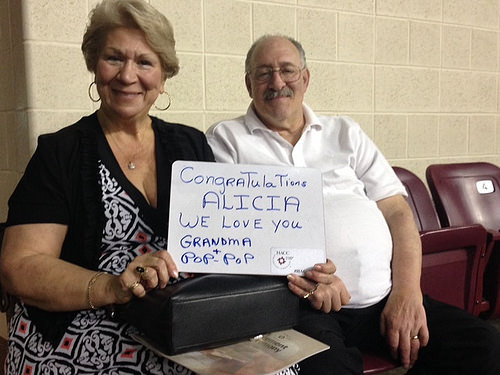 CongRaTulaTions
ALICIA
WE LOVE You
GRANDMA
+
PoP-PoP
HACC